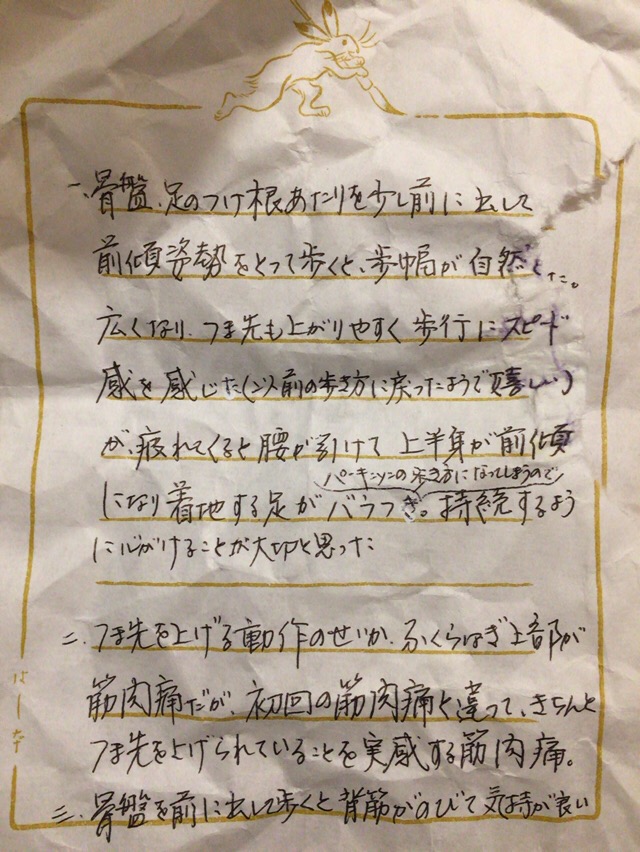 一、骨盤、足のつけ根あたりを少し前に出して
前傾姿勢をとって歩くと、歩幅が自然と
広くなり、つま先も上がりやすく歩行にスピード
感を感じた(以前の歩き方に戻ったようで嬉しい)
が、疲れてくると腰が引けて上半身が前傾
パーキンソンの歩き方になってしまうので
になり着地する足がバラつき。持続するよう
に心がけることが大切と思った
二、つま先を上げる動作のせいか、ふくらはぎ上部が
筋肉痛だが、初回の筋肉痛と違って、きちんと
つま先を上げられていることを実感する筋肉痛。
三、骨盤を前に出して歩くと背筋がのびて気持が良い